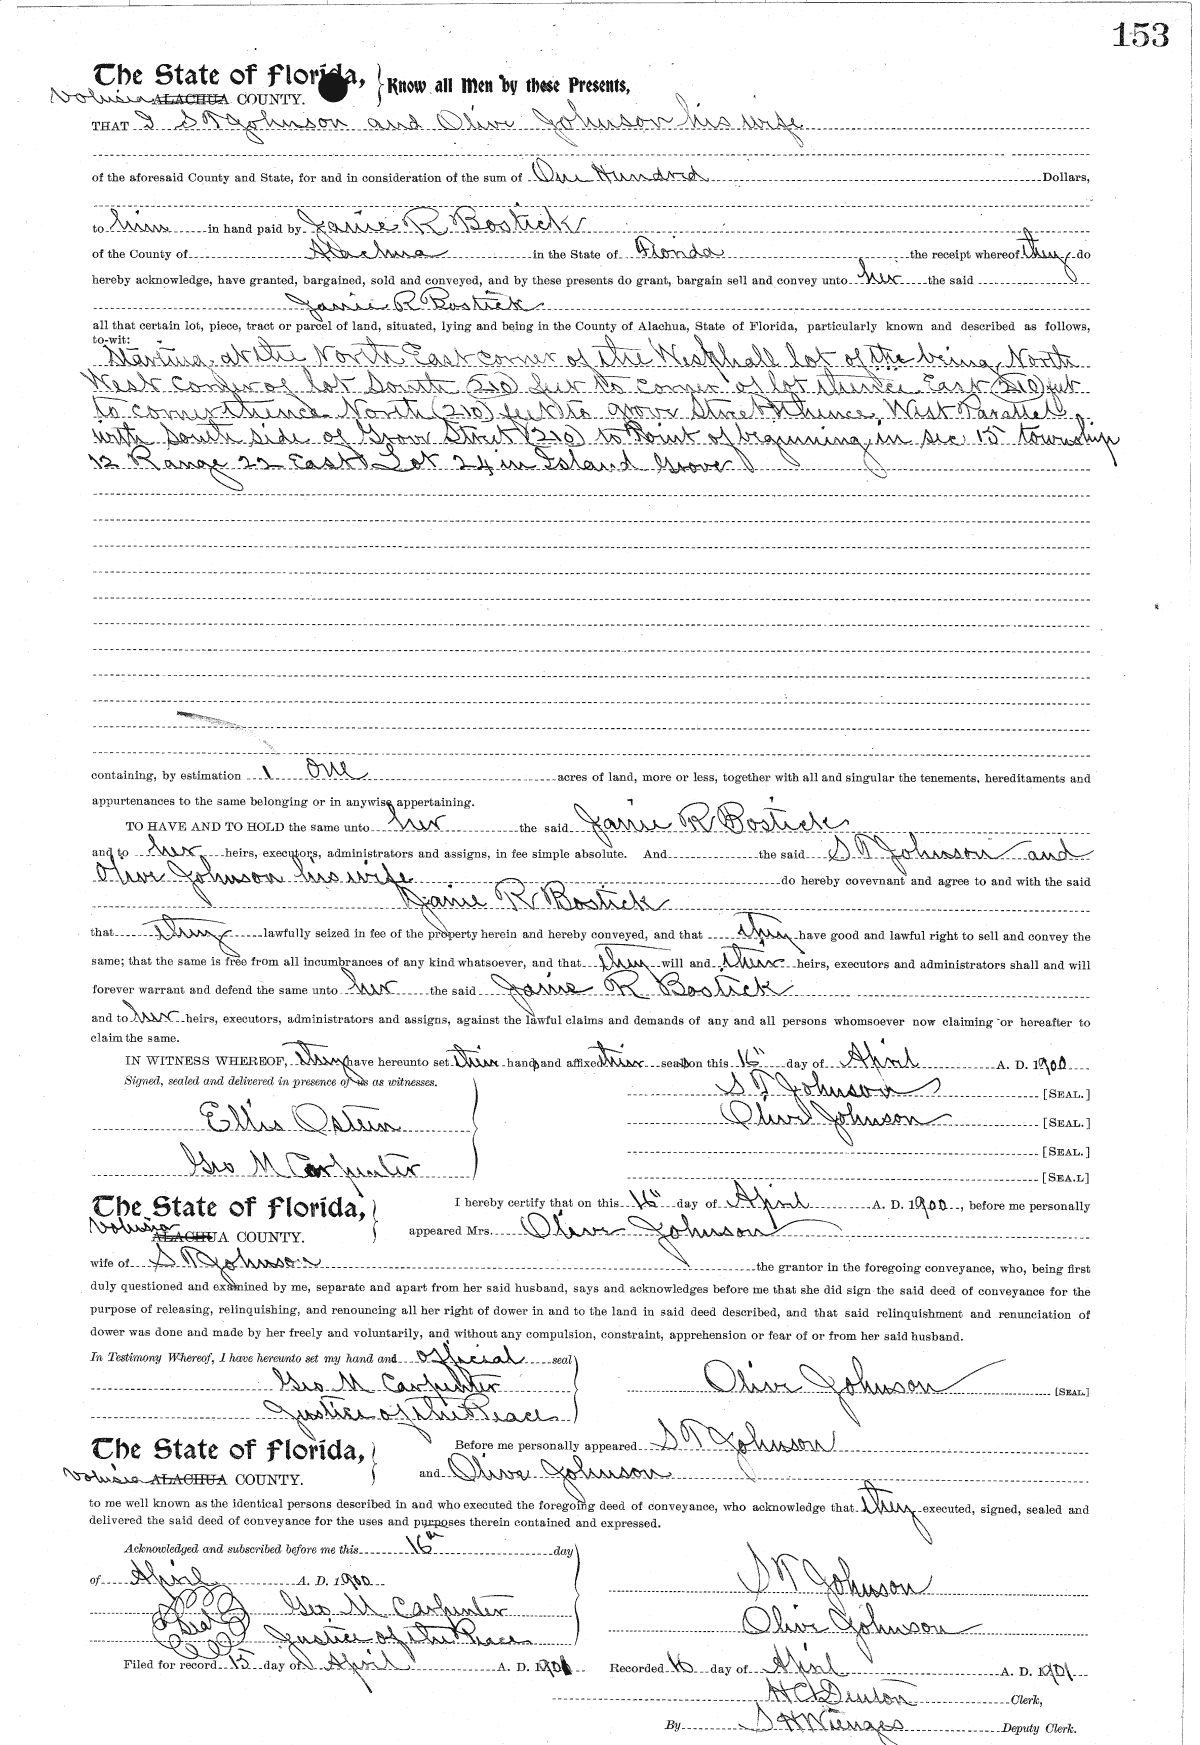 153
The State of Florida, Know all Men by these Presents,
Volusia ALACHUA COUNTY.
THAT I S T Johnson and Olive Johnson his wife
of the aforesaid County and State, for and in consideration of the sum of One Hundred Dollars,
to him in hand paid by Janie R Bostick
of the County of Alachua in the State of Florida the receipt whereof they do
hereby acknowledge, have granted, bargained, sold and conveyed, and by these presents do grant, bargain sell and convey unto her the said
Janie R Bostick
all that certain lot, piece, tract or parcel of land, situated, lying and being in the County of Alachua, State of Florida, particularly known and described as follows,
to-wit:
Starting at the North East corner of the Westphall lot of the being North
West corner of lot South (210) feet to corner of lot thence East (210) feet
to corner thence North (210) feet to grove Street thence West Parallel
with South side of Grove Street (210) to Point of beginning in sec 15 township
12 Range 22 East Lot 24 in Island Grove
containing, by estimation 1 One acres of land, more or less, together with all and singular the tenements, hereditaments and
appurtenances to the same belonging or in anywise appertaining.
TO HAVE AND TO HOLD the same unto her the said Janie R Bostick
and to her heirs, executors, administrators and assigns, in fee simple absolute. And the said S T Johnson and
Olive Johnson his wife do hereby covevnant and agree to and with the said
Janie R Bostick
that they lawfully seized in fee of the property herein and hereby conveyed, and that they have good and lawful right to sell and convey the
same; that the same is free from all incumbrances of any kind whatsoever, and that they will and their heirs, executors and administrators shall and will
forever warrant and defend the same unto her the said Janie R Bostick
and to her heirs, executors, administrators and assigns, against the lawful claims and demands of any and all persons whomsoever now claiming or hereafter to
claim the same.
IN WITNESS WHEREOF, they have hereunto set their hand and affixed their seal on this 16" day of April A. D. 1900
Signed, sealed and delivered in presence of us as witnesses.
S T Johnson [SEAL.]
Ellis Ostein Olive Johnson [SEAL.]
[SEAL.]
Geo M Carpenter [SEA.L]
The State of Florida, I hereby certify that on this 16" day of April A. D. 1900, before me personally
Volusia ALACHUA COUNTY. appeared Mrs. Olive Johnson
wife of S T Johnson the grantor in the foregoing conveyance, who, being first
duly questioned and examined by me, separate and apart from her said husband, says and acknowledges before me that she did sign the said deed of conveyance for the
purpose of releasing, relinquishing, and renouncing all her right of dower in and to the land in said deed described, and that said relinquishment and renunciation of
dower was done and made by her freely and voluntarily, and without any compulsion, constraint, apprehension or fear of or from her said husband.
In Testimony Whereof, I have hereunto set my hand and official seal
Geo M Carpenter Olive Johnson [SEAL.]
Justice of the Peace
The State of Florida, Before me personally appeared S T Johnson
Volusia ALACHUA COUNTY. and Olive Johnson
to me well known as the identical persons described in and who executed the foregoing deed of conveyance, who acknowledge that they executed, signed, sealed and
delivered the said deed of conveyance for the uses and purposes therein contained and expressed.
Acknowledged and subscribed before me this 16th day
of April A. D. 1900 S T Johnson
Seal Geo M Carpenter
Justice of the Peace Olive Johnson
Filed for record 15 day of April A. D. 1901 Recorded 16 day of April A. D. 1901
H C Denton Clerk,
By S H Wienges Deputy Clerk.